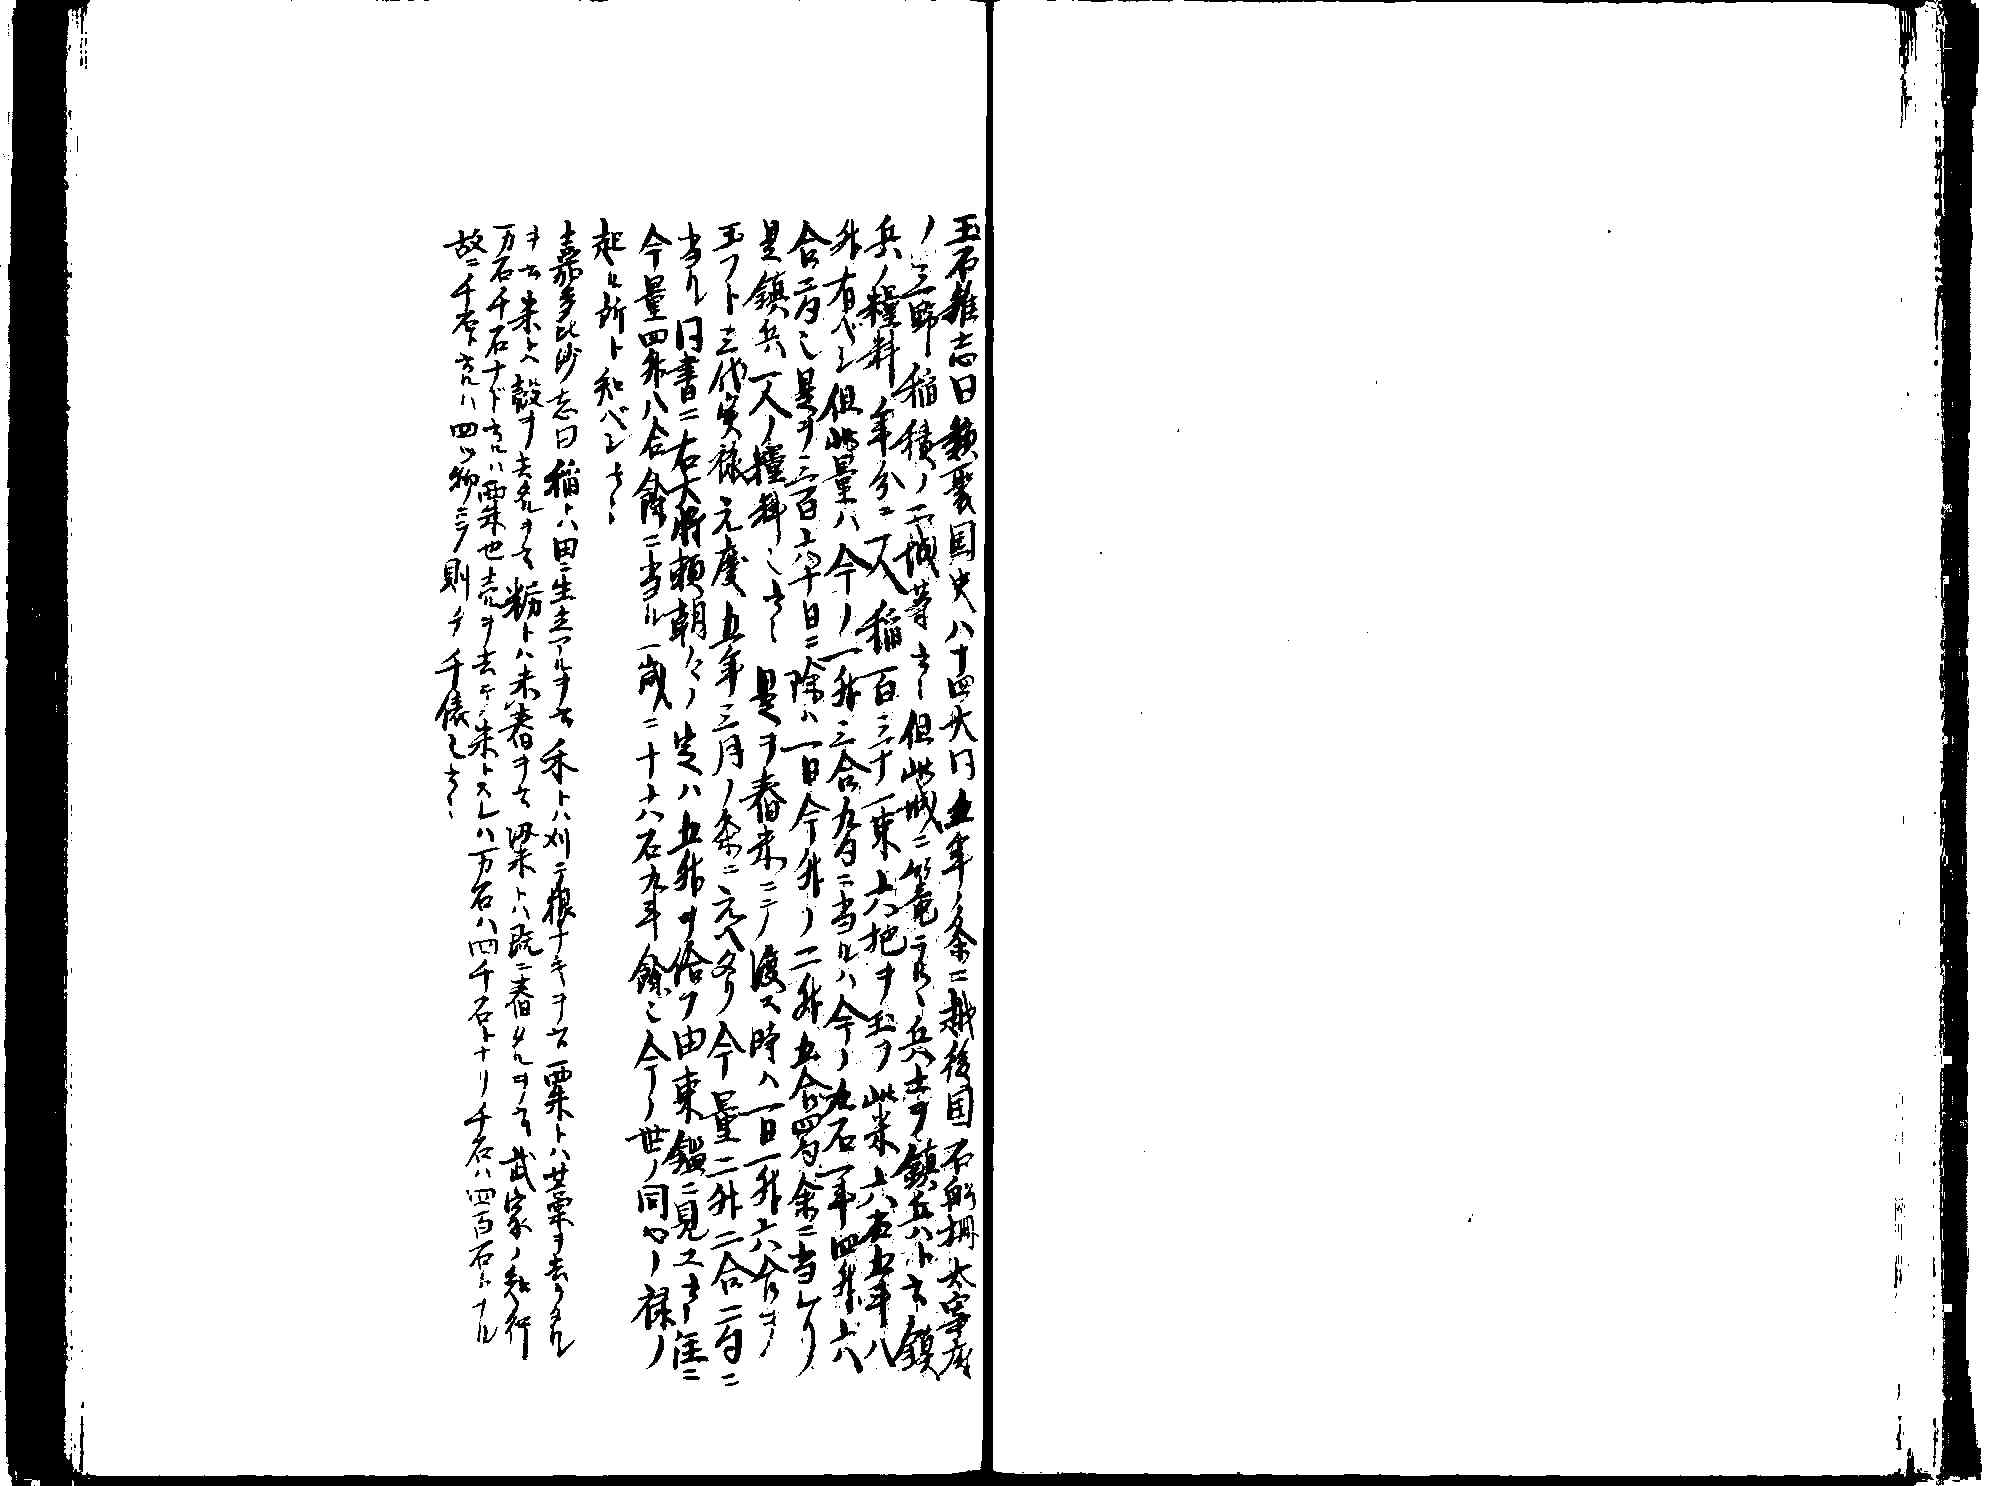 玉石雑志曰類聚国史八十四大同五年ノ条ニ越後国石船柵太宰府
ノ三野稲積ノ二城等云々但此城ニ篭ラルヽ兵士ヲ鎮兵ハト云鎮
兵ノ糧料年分ニ一人稲一百三十一束六把ヲ玉フ此米六石五斗八
升有ベシ但此量ハ今ノ一升三合九勺ニ当ルハ今ノ九石一斗四升六
合二勺ミ是ヲ三百六十日ニ除ハ一日今升ノ二升五合四勺余ニ当レリ
是鎮兵一人ノ糧料ミ云々是ヲ舂米ニテノ渡ス時ハ一日一升六合ヲノ
玉フト三代実禄元慶五年三月ノ条ニ元ヘタリ今量二升二合二勺ニ
当ル同書ニ右大将頼朝々ノ定ハ五升ヲ給フ由東鑑ニ見ユ云々僅ニ
今量四升八合餘ニ当ル一歳ニ十六石九斗餘ミ今ノ世ノ同心ノ禄ノ
起ル所ト知ベシ云々
嘉多比沙志曰稲トハ田ニ生立アルヲ云禾トハ刈テ根ナキヲ云粟トハ廿藁ヲ去タル
ヲ云米トヘ殻ヲ去名ヲ云粉トハ未舂ヲ云粱トハ既ニ舂タルヲ云武家ノ知行
万石千石ナド云ルハ粟米也売ヲ去テ米トスレハ万石ハ四千石トナリ千石ハ四百石トナル
故ニ千石ト云ルハ四ツ物ニテ則チ千俵ミ云々